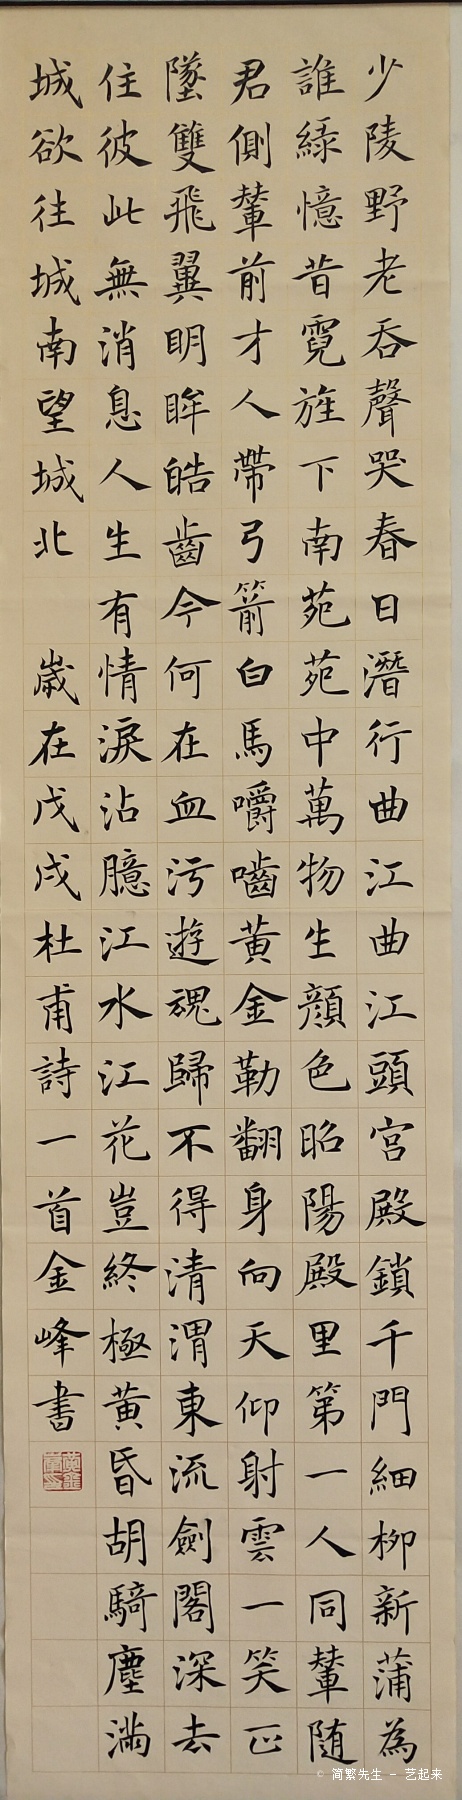 少陵野老吞聲哭春日潛行曲江曲江頭宮殿鎖千門細柳新蒲為
誰緑憶昔霓旌下南苑苑中萬物生顔色昭陽殿里第一人同輦随
君側輦前才人帶弓箭白馬嚼嚙黃金勒翻身向天仰射雲一笑正
墜雙飛翼明眸皓齒今何在血污遊魂歸不得清渭東流劍閣深去
住彼此無消息人生有情淚沾臆江水江花豈終極黃昏胡騎塵滿
城欲往城南望城北 歲在戊戌杜甫詩一首金峰書
© 简繁先生 - 艺起来